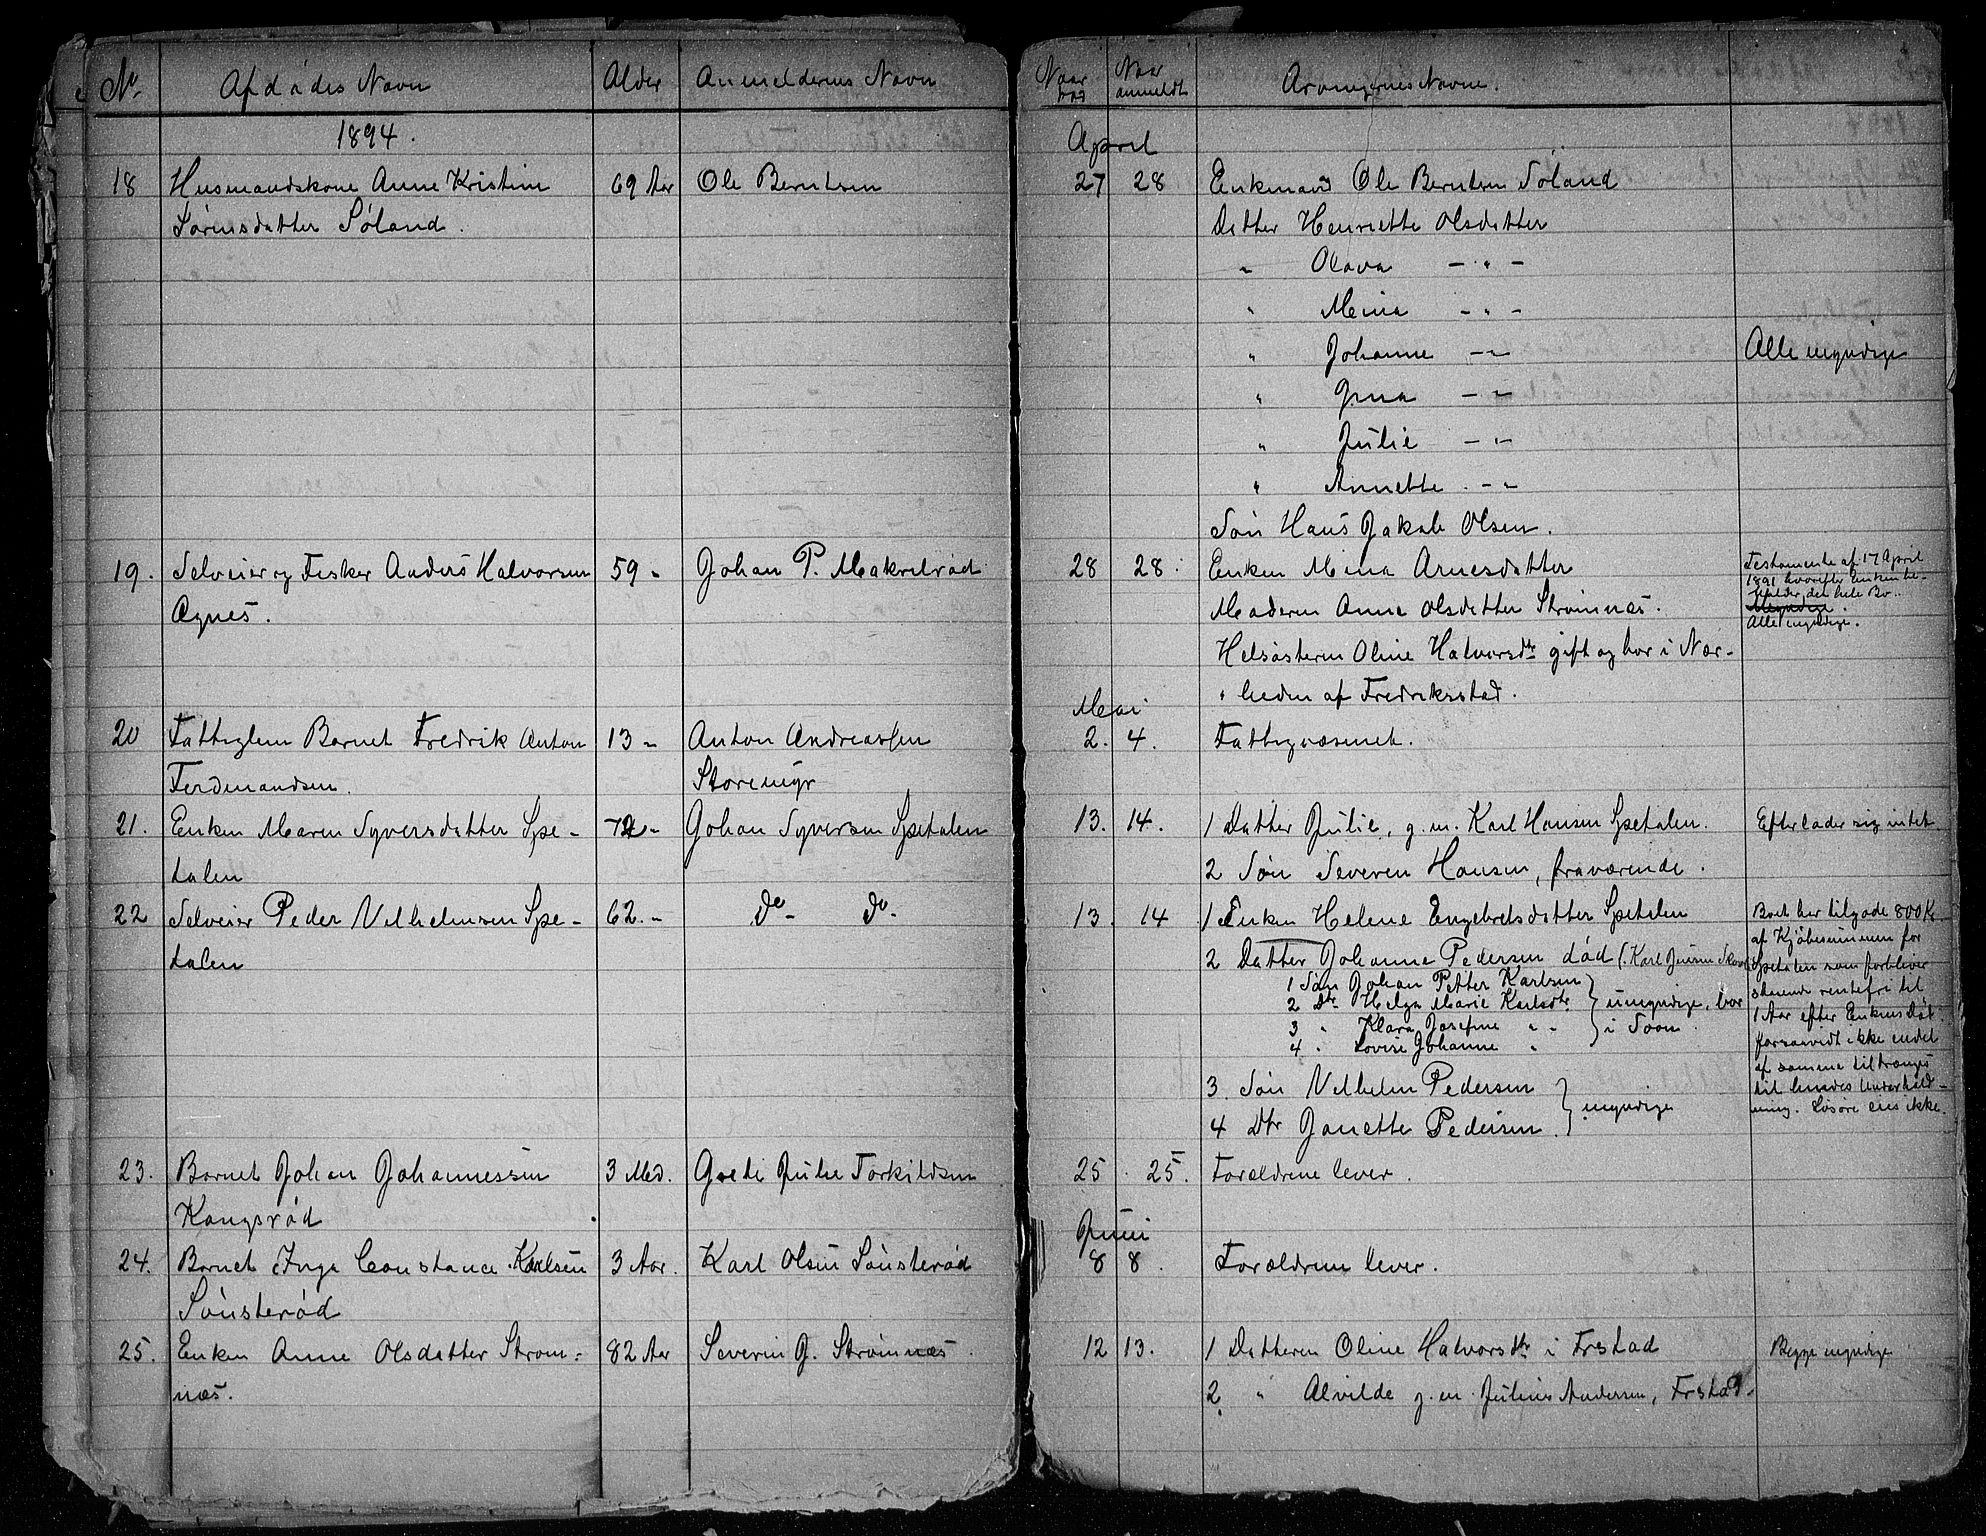 No. Afdødes Navn Alder Anmelderens Navn
1894.
18 Husmandskone Anne Kristine 69 Aar Ole Berntsen
Sørensdatter Søland.
19. Selveier og Fisker Anders Halvorsen 59 - Johan P. Makrelrød
Agnes.
20 Fattiglem Barnet Fredrik Anton 13 - Anton Andreassen
Ferdinandsen. Storemyr
21. Enken Maren Syversdatter Spe- Johan Syversen Spetalen
talen
22 Selveier Peder Vilhelmsen Spe- 62 - do - do -
talen
23. Barnet Johan Johannessen 3 Md. Julie Torkildsen
Kongsrød
24. Barnet Inga Constance Karlsen 3 Aar. Karl Olsen Sønsterød
Sønsterød
25. Enken Anne Olsdatter Strøm- 82 Aar Severin J. Strømnæs.
næs.
Naar død Naar anmeldt Arvingernes Navne.
April
27 28 Enkemand Ole Berntsen Søland
Datter Henriette Olsdatter
" Olava - " -
" Mina - " -
" Johanne - " - Alle myndige
" Jena - " -
" Julie - " -
" Annette - " -
Søn Hans Jakob Olsen.
28 28 Enken Mina Arnesdatter
Moderen Anne Olsdatter Strømnæs.
Helsøsteren Oline Halvorsdtr gift og bor i Nær-
" heden af Fredriksstad.
Testamente af 17 April
1891 hvorefter Enken be-
holder det hele Bo.
Myndige.
Alle myndige.
Mai
2. 4. Fattigvæsenet.
13. 14. 1 Datter Julie, g. m. Karl Hansen Spetalen. Efterlader sig intet.
2 Søn Severin Hansen, fraværende.
13. 14 1 Enken Helene Engebretsdatter Spetalen
2 Datter Johanne Pedersen død (Karl Jensen
1 Søn Johan Petter Karlsen
2 Dtr Helga Marie Karlsdtr umyndige, bor
3 " Klara Josefine " " i Soon.
4 " Lovise Johanne "
3. Søn Vilhelm Pedersen
4 Dtr Janette Pedersen. myndige
Boet har tilgode 800 Kr
af Kjøbesummen for
Spetalen som forbliver
staaende rentefri til
1 Aar efter Enkens Død
forsaavidt ikke endel
af samme tiltrænges
til hendes Underhold-
ning. Løsøre eies ikke.
25 25. Forældrene lever.
Juni
8 8. Forældrene lever.
12 13. 1 Datteren Oline Halvorsdtr i Frstad Begge myndige
2. " Alvilde g. m. Julius Andersen, Frstad.